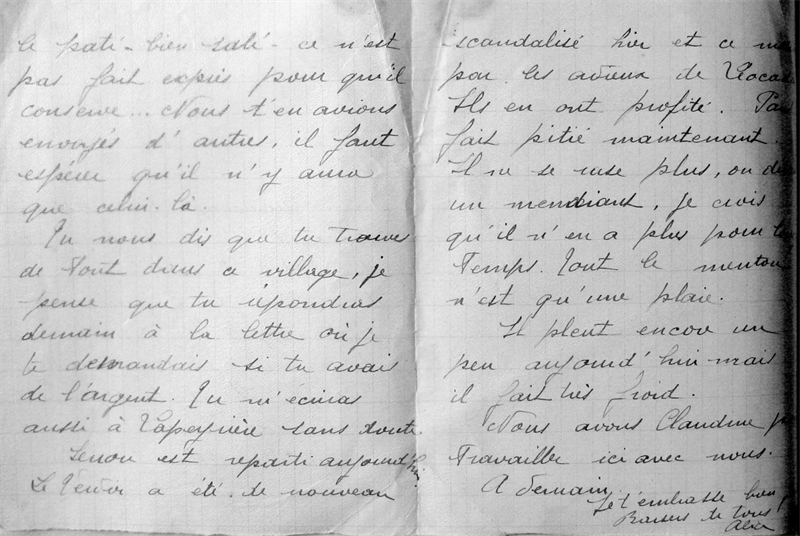 le paté - bien salé - ce n'est
pas fait exprès pour qu'il
conserve... Nous t'en avions
envoyés d'autres, il faut
espérer qu'il n'y aura
que celui-là.
Tu nous dis que tu trouves
de tout dans ce village, je
pense que tu répondras
demain à la lettre où je
te demandais si tu avais
de l'argent. Tu m'écriras
aussi à Lapeyrière sans doute.
est reparti aujourd'hui
Le a été de nouveau
scandalisé hier et ce
pour les adieux de
Ils en ont profité.
fait pitié maintenant.
Il ne se rase plus, on
un mendiant, je crois
qu'il n'en a plus pour
temps. Tout le menton
n'est qu'une plaie.
Il pleut encore un
peu aujourd'hui mais
il fait très froid.
Nous avons Claudine
travaille ici avec nous.
A demain
Je t'embrasse bien
Baisers de tous